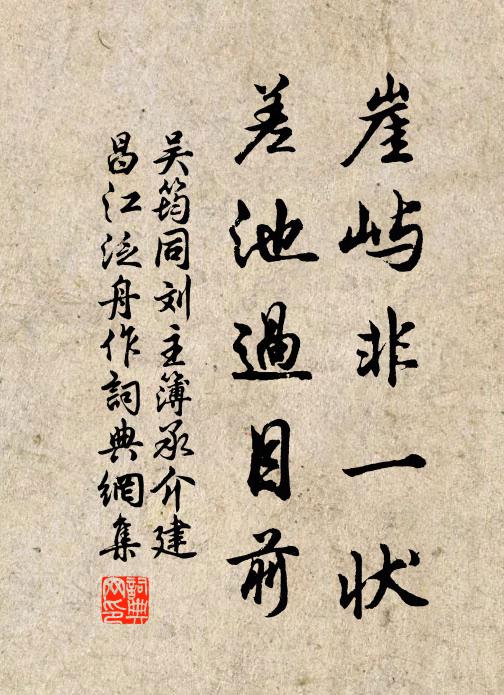 崖屿非一状
差池過目前
吴筠同刘主簿承介建
昌江泛舟作詞典網集
詞典網印